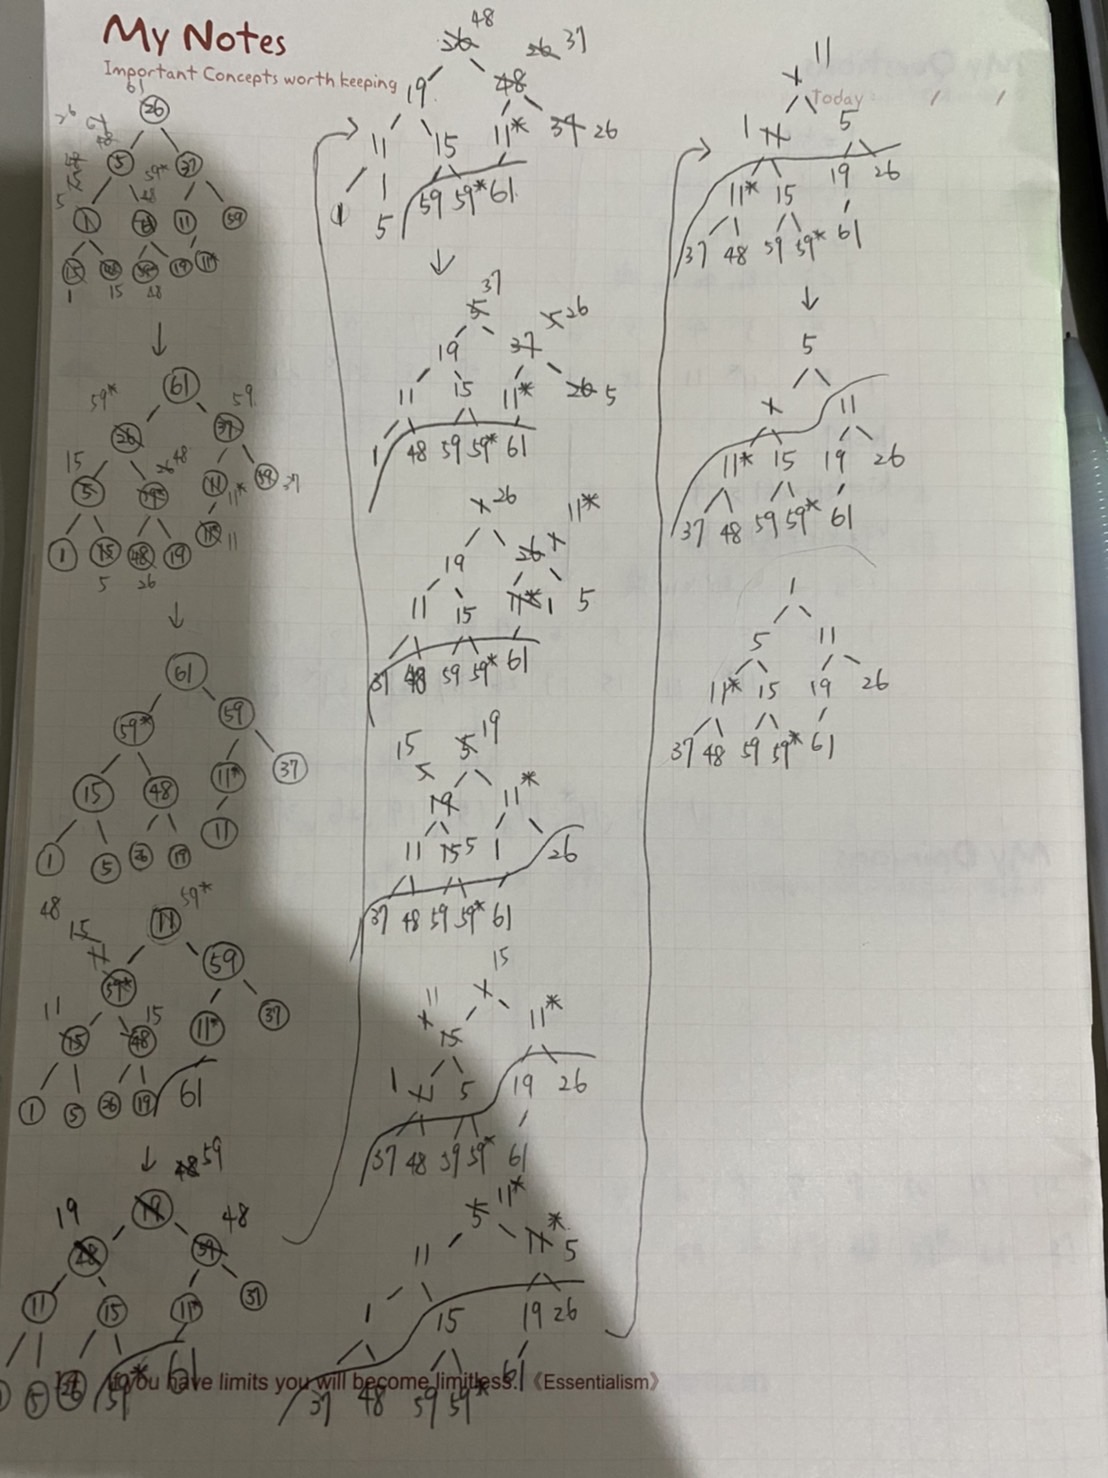 My Notes
Important Concepts worth keeping
61
26
5 37
59*
48
1 11 59
19 11*
1 15 48
61
59* 59
26 37
15 26 48
5 19* 11 11* 59 37
1 15 48 19 11* 11
5 26
61
59* 59
15 48 11* 37
1 5 26 19 11
59*
48 15 11
59* 59
11 15
15 48 11* 37
1 5 26 19 61
48 59
19
19 48
48 59
11 15 11* 37
1 5 26 59* 61
48
26 26 37
19 48
11 15 11* 37 26
1 5 59 59* 61
37
5 5 26
19 37
11 15 11* 26 5
1 48 59 59* 61
1 26 11*
19 26 1
11 15 11* 1 5
37 48 59 59* 61
15 5 19
5
19 11*
11 15 5 1 26
37 48 59 59* 61
15
11 1
1 15 11*
1 11 5 19 26
37 48 59 59* 61
5 11*
11 11* 5
1 15 19 26
37 48 59 59* 61
1 11
Today / /
1 11 5
11* 15 19 26
37 48 59 59* 61
5
1 11
11* 15 19 26
37 48 59 59* 61
1
5 11
11* 15 19 26
37 48 59 59* 61
you have limits you will become limitless.《Essentialism》